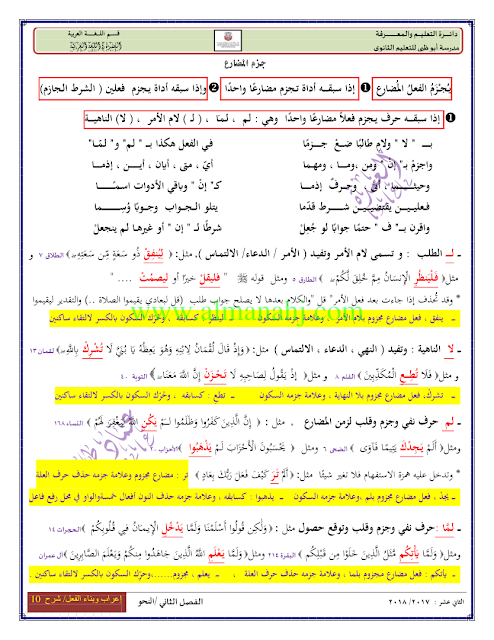 دائـرة التعليـم والمعـــرفة
مدرسة أبو ظبي للتعليم الثانوي
قـسم اللـغـة العربية
جزم المضارع
يُجْزَمُ الفعلُ المُضارع ❶ إذا سبقـه أداة تـجزم مضارعًا واحدًا ❷ وإذا سبقه أداة يجزم فعلين ( الشرط الجازم)
❶ إذا سبقـه حرف يجزم فعلاً مضارعًا واحدًا وهي : لم ، لمّا ، ( لـ ) لام الأمر ، ( لا ) الناهيـة
بـــ " لا " ولامٍ طالبًا ضعْ جـزمًا في الفعل هكذا بـ " لم" و" لمّا"
واجزمْ بـ" إن " ومن ،ومـا ، ومهما أيّ ، متى ، أيان ، أيـن ، إذمـا
وحيثُــمــا ، أنّى ، وحرفٌ إذمـا كـ" إنْ " وباقي الأدوات اسمًــا
فـعلـيـن يقتضـيـن شــرط قدّما يتلو الـجـواب وجـوبًا وُسِــما
واقرن بــ" ف " حتمًا جوابًا لو جُعلْ شرطًا لـ "إن " أو غيرها لم ينجعلْ
ـ لـِ الطلب : و تسمى لام الأمر وتفيد ( الأمر / الدعاء/ الالتماس ). مثل:﴿ لِيُنفِقْ ذُو سَعَةٍ مِّن سَعَتِهِ ﴾ الطلاق ٧ و
مثل﴿ فَلْيَنظُرِ الْإِنسَانُ مِمَّ خُلِقَ ﴾ الطارق ٥ ومثل قوله ﷺ " فليقلْ خيرًا أو ليصمُتْ .... "
* وقد تُحذف إذا جاءت بعد فعل الأمر" قل "والكلام بعدها لا يصلح جواب طلب (قل لعبادي يقيموا الصلاة ..) والتقدير ليقيموا
ـ ينفق ، فعل مضارع مجزوم بلام الأمر ، وعلامة جزمه السكون ـ لينظر: كسابقه ، وحُرّك السكون بالكسر لالتقاء ساكنين
ـ لا الناهية : وتفيد ( النهي ، الدعاء ، الالتماس ) مثل:﴿ وَإِذْ قَالَ لُقْمَانُ لِابْنِهِ وَهُوَ يَعِظُهُ يَا بُنَيَّ لَا تُشْرِكْ بِاللَّهِ﴾ لقمان ١٣
و مثل ﴿ فَلَا تُطِعِ الْمُكَذِّبِينَ ﴾ القلم ٨ و مثل﴿ إِذْ يَقُولُ لِصَاحِبِهِ لَا تَحْزَنْ إِنَّ اللَّهَ مَعَنَا ﴾ التوبة ٤٠
ـ تشركْ، فعل مضارع مجزوم بلا الناهية ، وعلامة جزمه السكون ـ تطع : كسابقه ، وحُرّك السكون بالكسر لالتقاء ساكنين
ـ لم حرف نفي وجزم وقلب لزمن المضارع ، مثل : ﴿ إِنَّ الَّذِينَ كَفَرُوا وَظَلَمُوا لَمْ يَكُنِ اللَّهُ لِيَغْفِرَ لَهُمْ ﴾ النساء ١٦٨
ومثل ﴿أَلَمْ يَجِدْكَ يَتِيمًا فَآوَىٰ ﴾ الضحى ٦ ومثل ﴿ يَحْسَبُونَ الْأَحْزَابَ لَمْ يَذْهَبُوا ﴾
* وتدخل عليه همزة الاستفهام فلا تغير شيئًا مثل:﴿ أَلَمْ تَرَ كَيْفَ فَعَلَ رَبُّكَ بِعَادٍ ﴾ تر : مضارع مجزوم وعلامة جزمه حذف حرف العلة
ـ يجدْ ، فعل مضارع مجزوم بلم ،وعلامة جزمه السكون ـ يذهبوا : كسابقه ، وعلامة جزمه حذف النون
ـ لمّا :حرف نفي وجزم وقلب وتوقع حصول مثل : ﴿ وَلَٰكِن قُولُوا أَسْلَمْنَا وَلَمَّا يَدْخُلِ الْإِيمَانُ فِي قُلُوبِكُمْ ﴾ الحجرات ١٤
ومثل ﴿ وَلَمَّا يَأْتِكُم مَّثَلُ الَّذِينَ خَلَوْا مِن قَبْلِكُم ﴾ البقرة ٢١٤ ومثل﴿ وَلَمَّا يَعْلَمِ اللَّهُ الَّذِينَ جَاهَدُوا مِنكُمْ وَيَعْلَمَ الصَّابِرِينَ ﴾ آل عمران
ـ يأتكم : فعل مضارع مجزوم بلما ، وعلامة جزمه حذف حرف العلة ، ـ يعلم ، مجزوم.......وحرّك السكون بالكسر لالتقاء ساكنين
www.almanahj.com
الثاني عشر : ٢٠١٧/ ٢٠١٨
الفصل الثاني /النحو
إعراب وبناء الفعل/ شرح 10